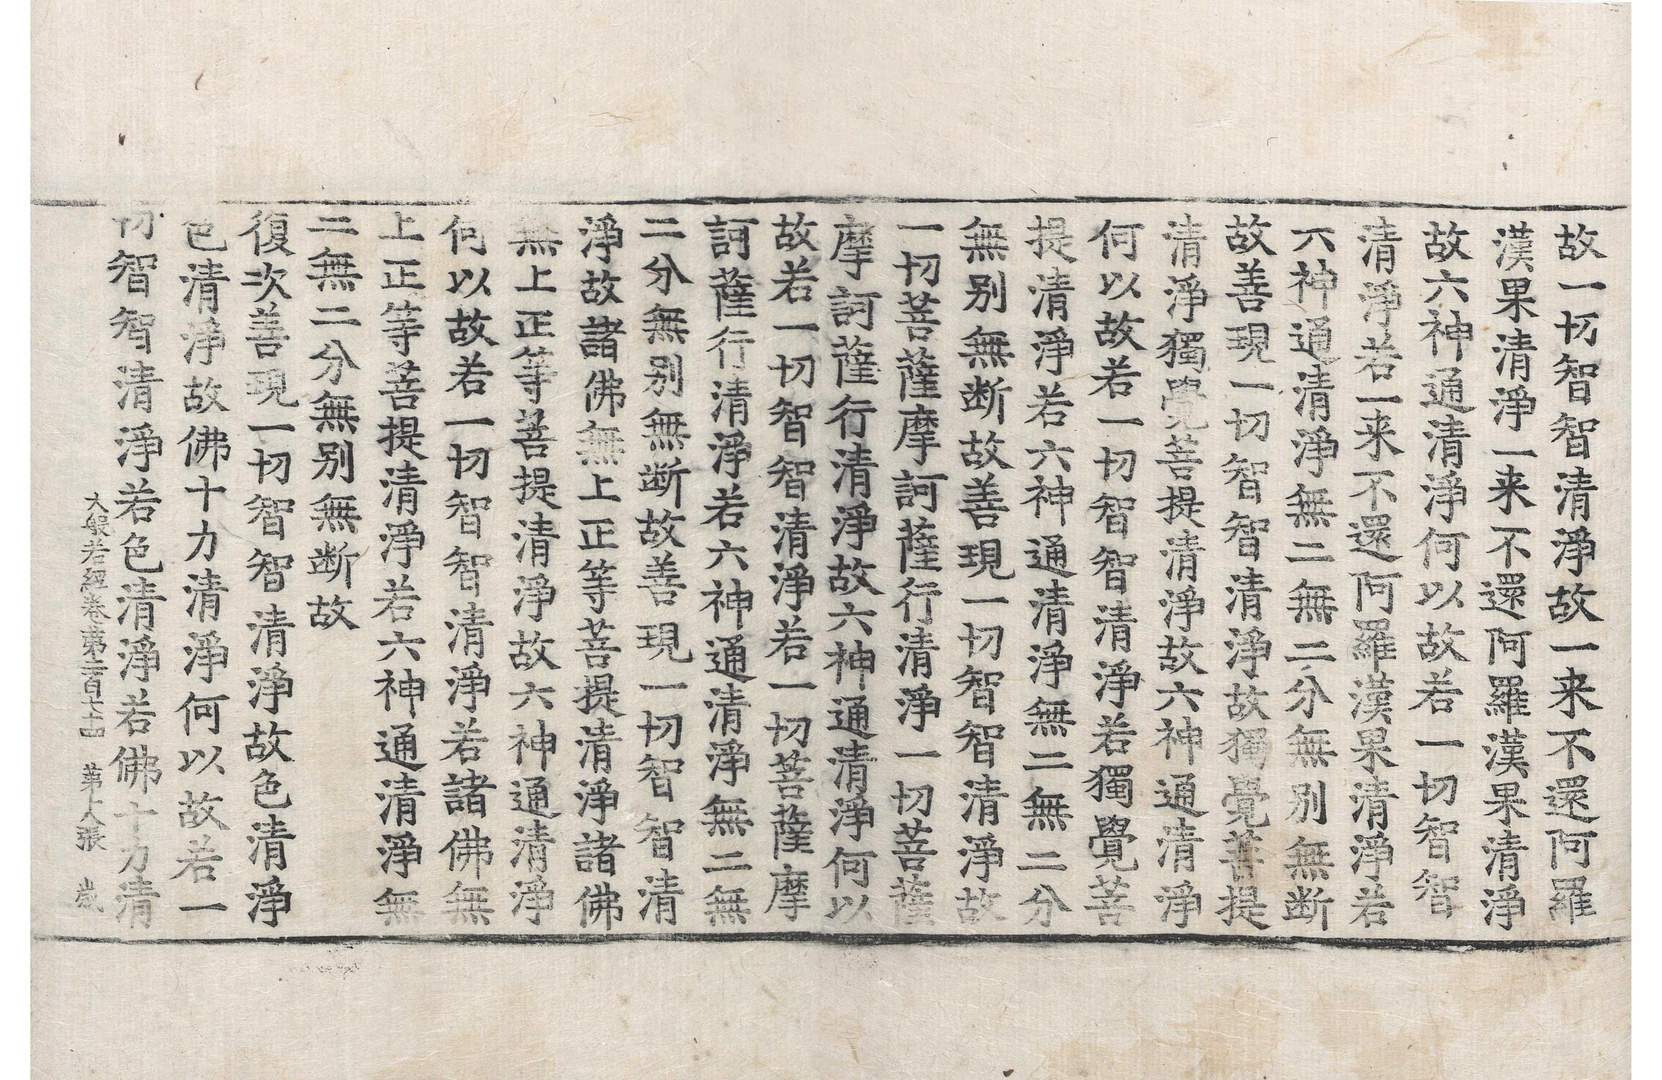 故一切智智清淨故一来不還阿羅
漢果清淨一来不還阿羅漢果清淨
故六神通清淨何以故若一切智智
清淨若一来不還阿羅漢果清淨若
六神通清淨無二無二分無别無断
故善現一切智智清淨故獨覺菩提
清淨獨覺菩提清淨故六神通清淨
何以故若一切智智清淨若獨覺菩
提清淨若六神通清淨無二無二分
無别無断故善現一切智智清淨故
一切菩薩摩訶薩行清淨一切菩薩
摩訶薩行清淨故六神通清淨何以
故若一切智智清淨若一切菩薩摩
訶薩行清淨若六神通清淨無二無
二分無别無断故善現一切智智清
淨故諸佛無上正等菩提清淨諸佛
無上正等菩提清淨故六神通清淨
何以故若一切智智清淨若諸佛無
上正等菩提清淨若六神通清淨無
二無二分無别無断故
復次善現一切智智清淨故色清淨
色清淨故佛十力清淨何以故若一
切智智清淨若色清淨若佛十力清
大般若經卷第二百七十四 第八張 歲